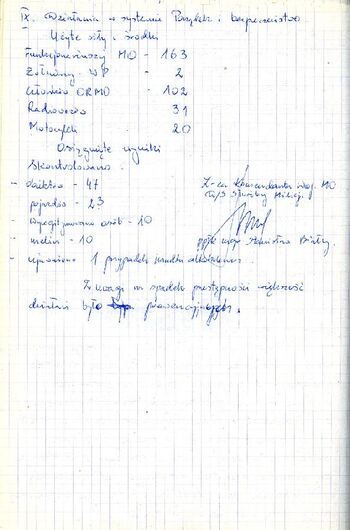 IX. Działania w systemie Porządek i bezpieczeństwo
Użyte siły i środki
Funkcjonariuszy MO - 163
Żołnierzy WP - 2
Członków ORMO - 102
Radiowozów 31
Motocykli 20
Osiągnięte wyniki
Skontrolowano
- obiektów - 47
- pojazdów - 23
- wylegitymowano osób - 10
- melin - 10
- ujawniono 1 przypadek handlu alkoholem.
Z-ca Komendanta Woj. MO
ds Służby Milicji
ppłk mgr
Z uwagi na spadek przestępczości większość
działań było prewencyjnych.